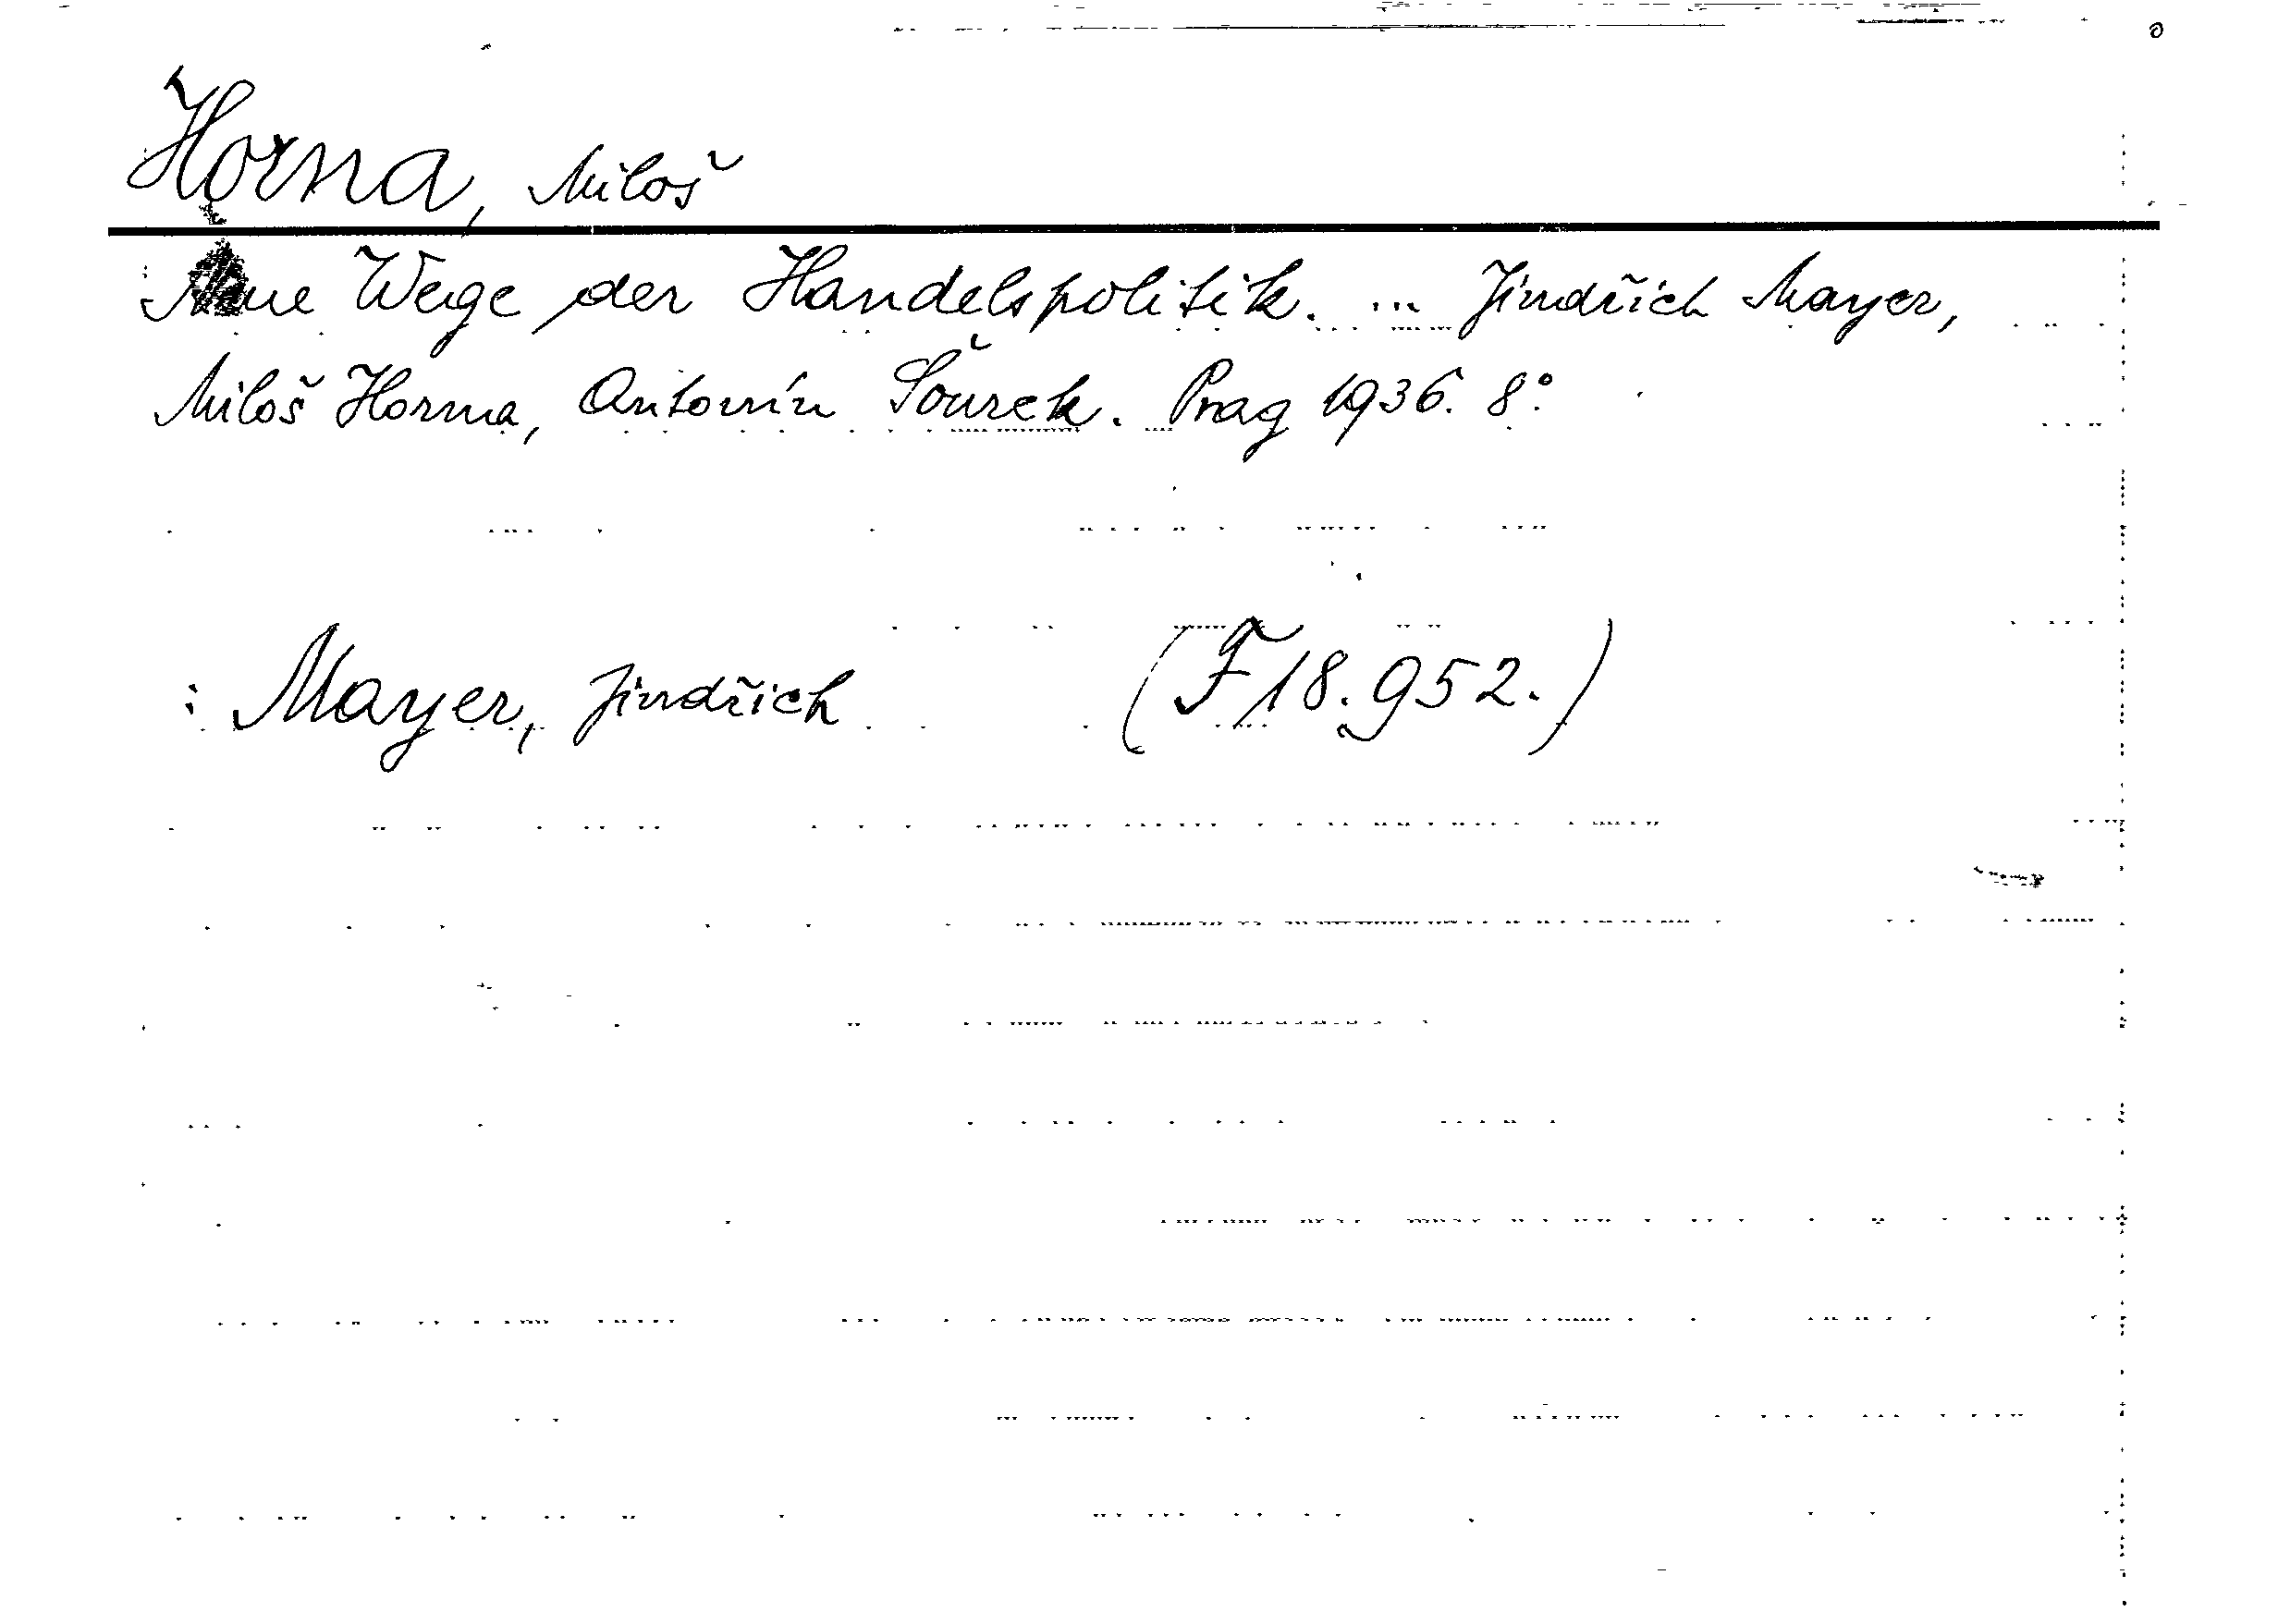 Horna, Miloš
Neue Wege der Handelspolitik. ... Jindřich Mayer,
Miloš Horna, Antonín Šourek. Prag 1936. 8°.
: Mayer, Jindřich (F 18.952.)